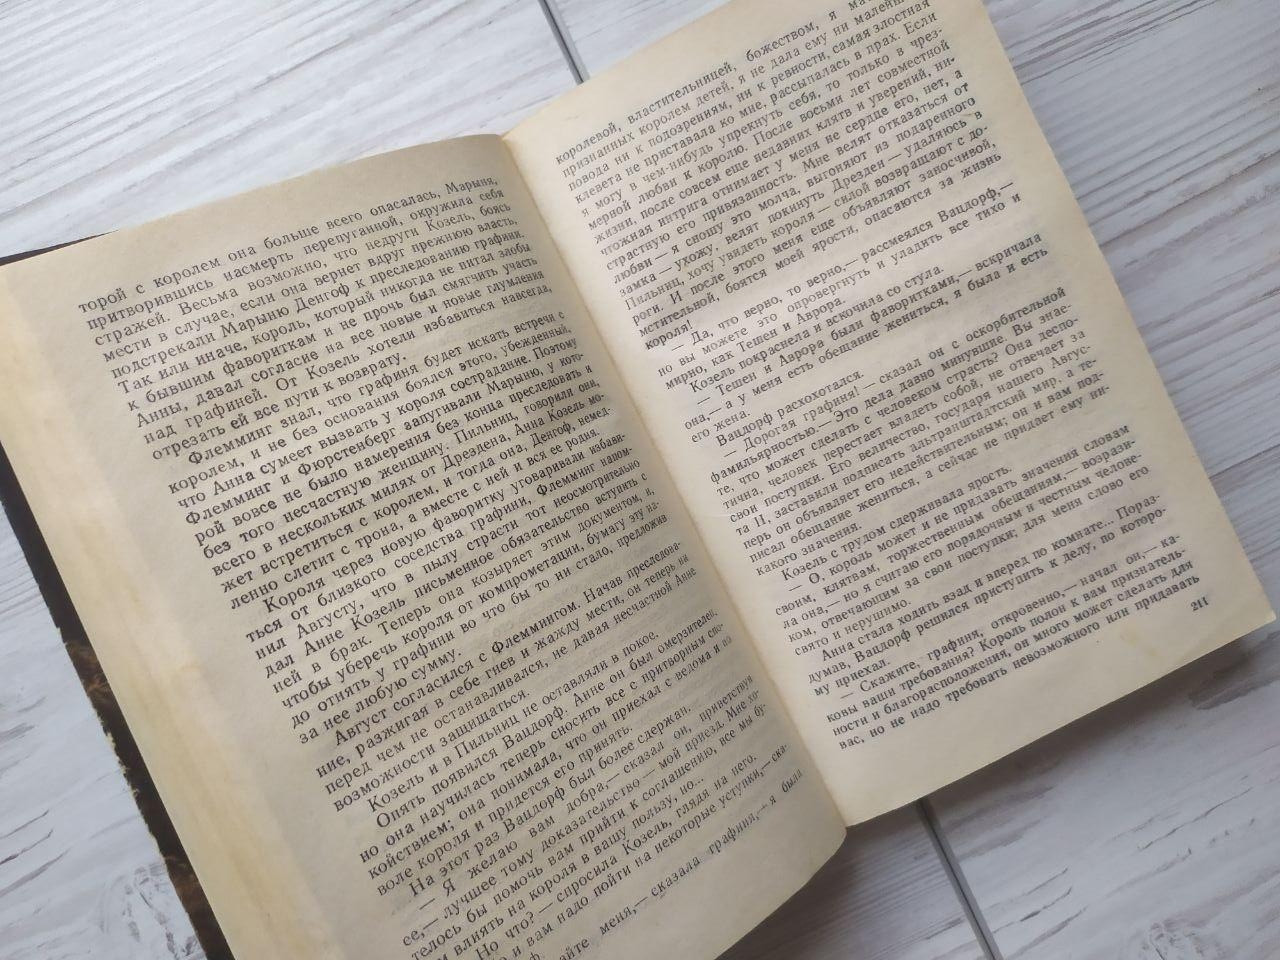 торой с королем она больше всего опасалась, Марыня,
притворившись насмерть перепуганной, окружила себя
стражей. Весьма возможно, что недруги Козель, боясь
мести в случае, если она вернет вдруг прежнюю власть,
подстрекали Марыню Денгоф к преследованию графини.
Так или иначе, король, который никогда не питал злобы
к бывшим фавориткам и не прочь был смягчить участь
Анны, давал согласие на все новые и новые глумления
над графиней. От Козель хотели избавиться навсегда,
отрезать ей все пути к возврату.
Флемминг знал, что графиня будет искать встречи с
королем, и не без основания боялся этого, убежденный,
что Анна сумеет вызвать у короля сострадание. Поэтому
Флемминг и Фюрстенберг запугивали Марыню, у кото-
рой вовсе не было намерения без конца преследовать и
без того несчастную женщину. Пильниц, говорили они,
всего в нескольких милях от Дрездена, Анна Козель мо-
жет встретиться с королем, и тогда она, Денгоф, немед-
ленно слетит с трона, а вместе с ней и вся ее родня.
Короля через новую фаворитку уговаривали избавит-
ься от близкого соседства графини, Флемминг напом-
нил Августу, что в пылу страсти тот неосмотрительно
дал Анне Козель письменное обязательство вступить с
ней в брак. Теперь она козыряет этим документом, и,
чтобы уберечь короля от компрометации, бумагу эту на-
до отнять у графини во что бы то ни стало, предложив
за нее любую сумму.
Август согласился с Флеммингом. Начав преследова-
ние, разжигая в себе гнев и жажду мести, он теперь ни
перед чем не останавливался, не давая несчастной Анне
возможности защищаться.
Козель и в Пильниц не оставляли в покое.
Опять появился Вацдорф. Анне он был омерзителен,
но она научилась теперь сносить все с притворным спо-
койствием; она понимала, что он приехал с ведома и по
воле короля и придется его принять.
На этот раз Вацдорф был более сдержан.
— Я желаю вам добра,— сказал он, приветствуя
ее,— лучшее тому доказательство — мой приезд. Мне хо-
телось бы помочь вам прийти к соглашению, все мы бу-
м влиять на короля в вашу пользу, но...
Но что? — спросила Козель, глядя на него.
о и вам надо пойти на некоторые уступки,— ска-
ф.
айте меня,— сказала графиня,— я была
королевой, властительницей, божеством, я ма
признанных королем детей, я не дала ему ни малень
повода ни к подозрениям, ни к ревности, самая злостная
клевета не приставала ко мне, рассыпалась в прах. Если
я могу в чем-нибудь упрекнуть себя, то только в чрез-
мерной любви к королю. После восьми лет совместной
жизни, после совсем еще недавних клятв и уверений, ни-
чтожная интрига отнимает у меня не сердце его, нет, а
страстную его привязанность. Мне велят отказаться от
любви — я сношу это молча, выгоняют из подаренного
замка — ухожу, велят покинуть Дрезден — удаляюсь в
Пильниц, хочу увидеть короля — силой возвращают с до-
роги. И после этого меня еще объявляют заносчивой,
мстительной, боятся моей ярости, опасаются за жизнь
короля!
— Да, что верно, то верно,— рассмеялся Вацдорф,—
но вы можете это опровергнуть и уладить все тихо и
мирно, как Тешен и Аврора.
Козель покраснела и вскочила со стула.
— Тешен и Аврора были фаворитками,— вскричала
она,— а у меня есть обещание жениться, я была и есть
его жена.
Вацдорф расхохотался.
— Дорогая графиня! — сказал он с оскорбительной
фамильярностью.— Это дела давно минувшие. Вы знае-
те, что может сделать с человеком страсть? Она деспо-
тична, человек перестает владеть собой, не отвечает за
свои поступки. Его величество, государя нашего Авгус-
та II, заставили подписать альтранштадтский мир, а те-
перь он объявляет его недействительным; он и вам под-
писал обещание жениться, а сейчас не придает ему ни-
какого значения.
Козель с трудом сдерживала ярость.
— О, король может и не придавать значения словам
своим, клятвам, торжественным обещаниям,— возрази-
ла она,— но я считаю его порядочным и честным челове-
ком, отвечающим за свои поступки; для меня слово его
свято и нерушимо.
Анна стала ходить взад и вперед по комнате... Пораз-
думав, Вацдорф решился приступить к делу, по которо-
му приехал.
— Скажите, графиня, откровенно,— начал он,— ка-
ковы ваши требования? Король полон к вам признатель-
ности и благорасположения, он много может сделать для
вас, но не надо требовать невозможного или придавать
211